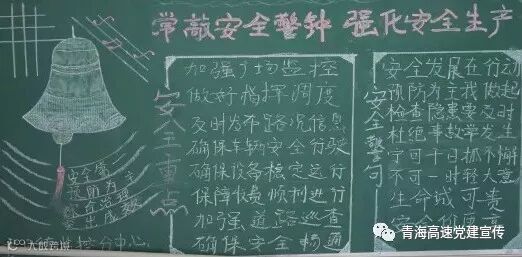 常敲安全警钟 强化安全生产
安全第一
预防为主
综合治理
安全重点
加强广场监控
做好指挥调度
及时发布路况信息
确保车辆安全行驶
确保设备稳定运行
保障收费顺利进行
加强道路巡查
确保安全畅通
安全警句
安全发展在行动
预防为主找做起
检查隐患要及时
杜绝事故学发生
宁可千日抓不懈
不可一时轻大意
生命诚可贵
安全价更高
监控分中心
青海高速党建宣传